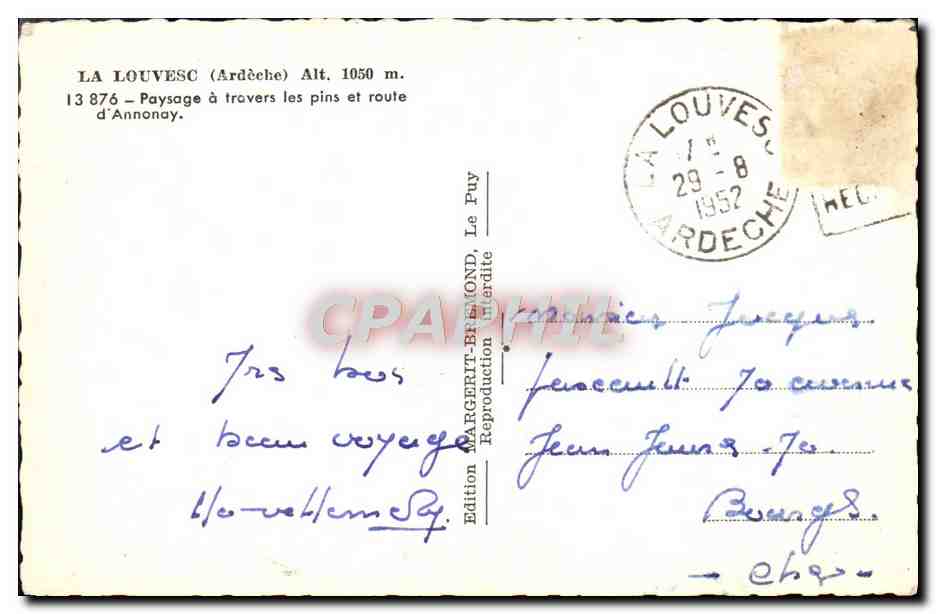 LA LOUVESC (Ardèche) Alt. 1050 m.
13 876 – Paysage à travers les pins et route
d'Annonay.
LA LOUVESC
29 - 8
1952
ARDECHE
Edition MARGERIT-BREMOND, Le Puy
Reproduction interdite
CPAPHIL
Très bon
et beau voyage
Monsieur Jacques
70 avenue
Jean Jaurès 70
Bourges.
– Cher –